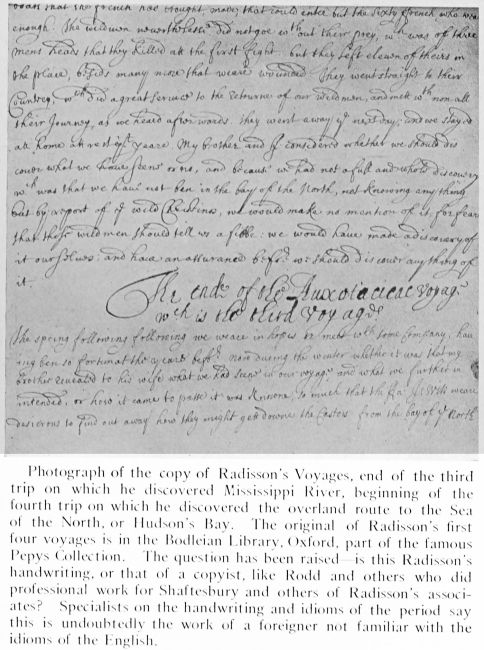 boats that the french has brought, moves that could enter but the sixty ffrench who weare
enough. The wildmen neverthelesse did not goe wthout their prey, wch was of three
mens heads that they killed att the first fight. but they left eleven of theirs in
the place, besids many more that weare wounded. They went straight to their
Countrey, wch did a great service to the retourne of our wildmen, and mett wth non all
their Journey, as we heard afterwards. they went away ye next day; and we stayed
att home att rest yt yeare. My brother and I considered whether we should dis
cover what we have seene or no, and because we had not a full and whole discovery
wch was that we have not ben in the bay of the North, not knowing any thing
but by report of ye wild Christinos, we would make no mention of it, for feare
that those wildmen should tell us a fibbe: we would have made a discovery of
it ourselves: and have an assurance before we should discover any thing of
it.
The ende of the Auxotacicac voyage
wch is the third voyage
The spring following following we weare in hopes to meet wth some Company, hav
ing ben so fortunat the yeare before. now during the winter whether it was that my
brother revealed to his wife what we had seene in our voyage and what we further in
intended, or how it came to passe it was knowne, so much that the ffa Jesuits weare
desirous to find out a way how they might gett downe the Castors from the bay of ye North
Photograph of the copy of Radisson's Voyages, end of the third
trip on which he discovered Mississippi River, beginning of the
fourth trip on which he discovered the overland route to the Sea
of the North, or Hudson's Bay. The original of Radisson's first
four voyages is in the Bodleian Library, Oxford, part of the famous
Pepys Collection. The question has been raised—is this Radisson's
handwriting, or that of a copyist, like Rodd and others who did
professional work for Shaftesbury and others of Radisson's associ-
ates? Specialists on the handwriting and idioms of the period say
this is undoubtedly the work of a foreigner not familiar with the
idioms of the English.